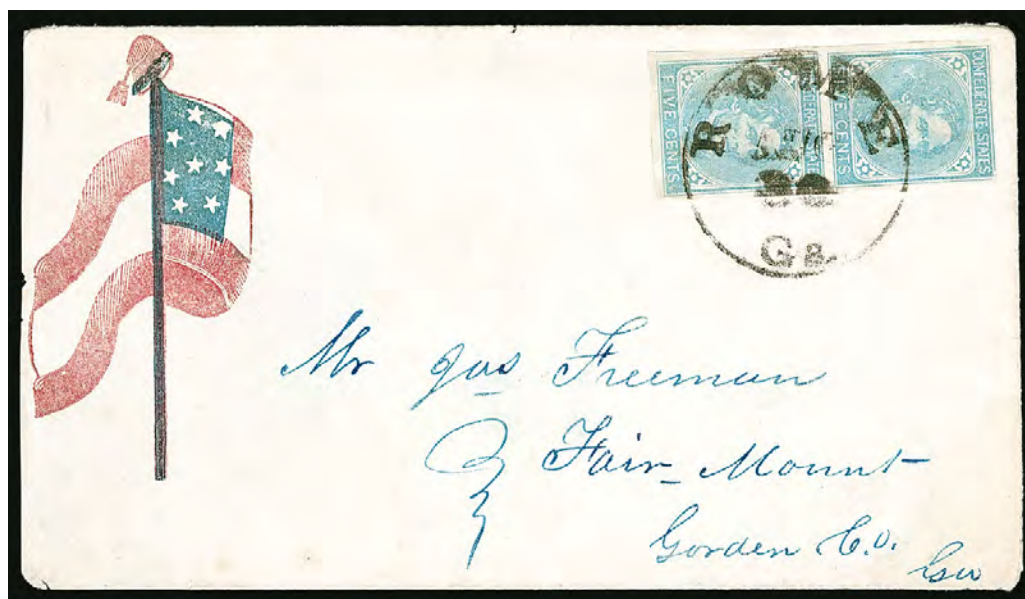 FIVE CENTS
FIVE CENTS
CONFEDERATE STATES
ROME
Ga.
Mr Jas Freeman
Fair-Mount
Gorden Co.
Geo